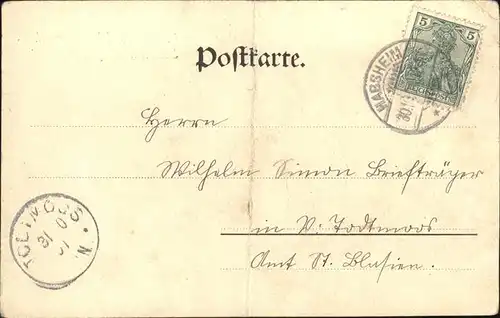 Postkarte.
5
HABSHEIM
30.1
Herrn
Wilhelm Simon Briefträger
in V. Todtmoos
Amt St. Blasien.
TODTMOOS